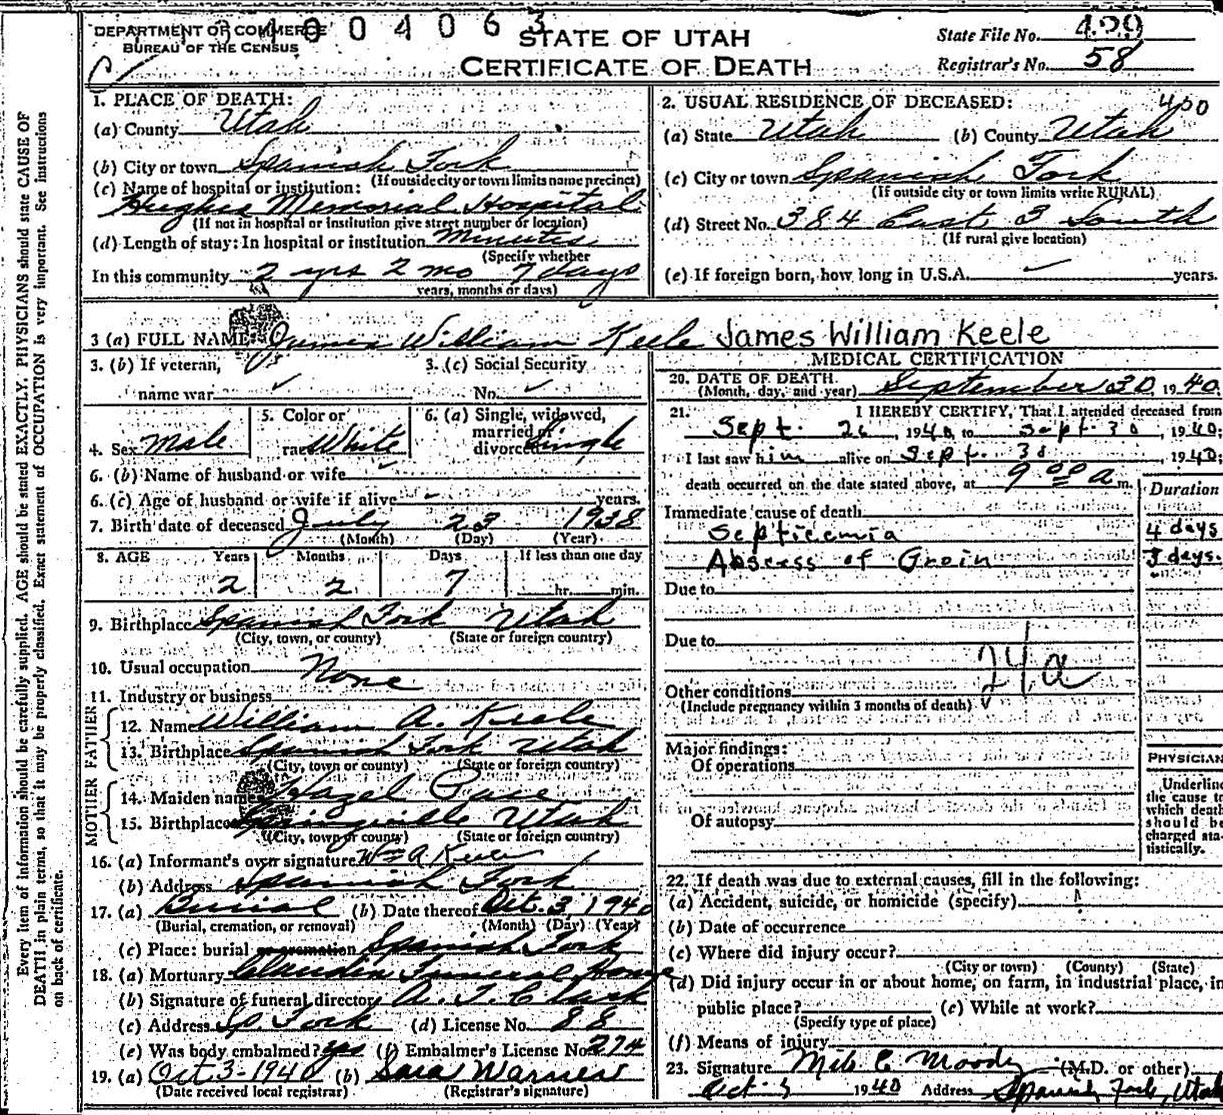 Every item of information should be carefully supplied. AGE should be stated EXACTLY. PHYSICIANS should state CAUSE OF
DEATH in plain terms, so that it may be properly classified. Exact statement of OCCUPATION is very important. See instructions
on back of certificate.
DEPARTMENT OF COMMERCE
BUREAU OF THE CENSUS
4004063
STATE OF UTAH
CERTIFICATE OF DEATH
State File No. 429
Registrar's No. 58
1. PLACE OF DEATH:
(a) County Utah
(b) City or town Spanish Fork
(If outside city or town limits name precinct)
(c) Name of hospital or institution:
Hughes Memorial Hospital
(If not in hospital or institution give street number or location)
(d) Length of stay: In hospital or institution Minutes
(Specify whether
In this community 2 yrs 2 mo 7 days
years, months or days)
2. USUAL RESIDENCE OF DECEASED: 400
(a) State Utah (b) County Utah
(c) City or town Spanish Fork
(If outside city or town limits write RURAL)
(d) Street No. 384 East 3 South
(If rural give location)
(e) If foreign born, how long in U.S.A. years.
3 (a) FULL NAME James William Keele James William Keele
3. (b) If veteran,
name war
3. (c) Social Security
No.
4. Sex Male
5. Color or
race White
6. (a) Single, widowed,
married or
divorced Single
6. (b) Name of husband or wife
6. (c) Age of husband or wife if alive years.
7. Birth date of deceased July 23 1938
(Month) (Day) (Year)
8. AGE Years Months Days If less than one day
2 2 7 hr. min.
9. Birthplace Spanish Fork Utah
(City, town, or county) (State or foreign country)
10. Usual occupation None
11. Industry or business
FATHER
12. Name William A. Keele
13. Birthplace Spanish Fork Utah
(City, town or county) (State or foreign country)
MOTHER
14. Maiden name Hazel Pace
15. Birthplace Springville Utah
(City, town or county) (State or foreign country)
16. (a) Informant's own signature Wm A Keele
(b) Address Spanish Fork
17. (a) Burial (b) Date thereof Oct. 3, 1940
(Burial, cremation, or removal) (Month) (Day) (Year)
(c) Place: burial or cremation Spanish Fork
18. (a) Mortuary Claudin Funeral Home
(b) Signature of funeral director A. T. Clark
(c) Address Sp. Fork (d) License No. 88
(e) Was body embalmed? yes (f) Embalmer's License No. 274
19. (a) Oct 3-1940 (b) Sara Warner
(Date received local registrar) (Registrar's signature)
MEDICAL CERTIFICATION
20. DATE OF DEATH
(Month, day, and year) September 30, 1940
21. I HEREBY CERTIFY, That I attended deceased from
Sept. 26, 1940, to Sept. 30, 1940;
I last saw him alive on Sept. 30 1940;
death occurred on the date stated above, at 9 00 a m.
Duration
Immediate cause of death
Septicemia 4 days
Abscess of Groin 5 days.
Due to
Due to
24a
Other conditions
(Include pregnancy within 3 months of death)
Major findings:
Of operations
Of autopsy
PHYSICIAN
Underline
the cause to
which death
should be
charged sta-
tistically.
22. If death was due to external causes, fill in the following:
(a) Accident, suicide, or homicide (specify)
(b) Date of occurrence
(c) Where did injury occur?
(City or town) (County) (State)
(d) Did injury occur in or about home, on farm, in industrial place, in
public place? (e) While at work?
(Specify type of place)
(f) Means of injury
23. Signature C Moody (M.D. or other)
Oct 3 1940 Address Spanish Fork, Utah